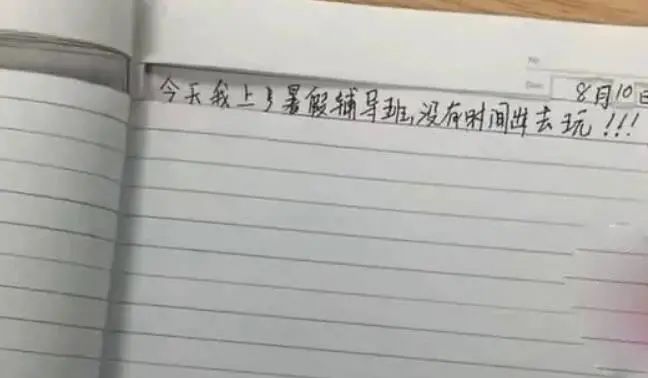 8月10日
今天我上了暑假辅导班,没有时间出去玩!!!